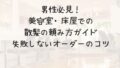 男性必見！
美容室・床屋での
散髪の頼み方ガイド
失敗しないオーダーのコツ